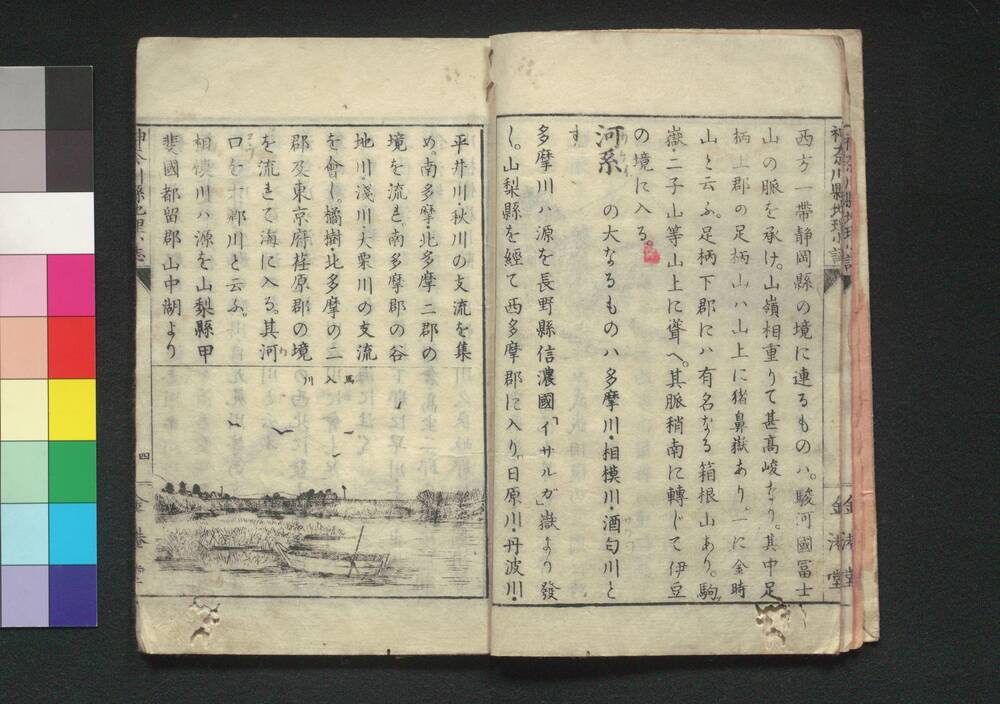 西方一帶静岡縣の境に連るものハ。駿河國冨士
山の脈を承け。山嶺相重りて甚高峻なり。其中足
柄上郡の足柄山ハ山上に猪鼻嶽あり。一に金時
山と云ふ。足柄下郡にハ有名なる箱根山あり。駒
嶽・二子山等山上に聳へ。其脈稍南に轉じて伊豆
の境に入る。
河系　の大なるものハ多摩川・相模川・酒匂川と
す。
多摩川ハ源を長野縣信濃國「イサルガ」嶽より發
し。山梨縣を經て西多摩郡に入り。日原川・丹波川・
平井川・秋川の支流を集
め。南多摩・北多摩二郡の
境を流れ南多摩郡の谷
地川・淺川・大栗川の支流
を會し。橘樹北多摩の二
郡及東京府荏原郡の境
を流れて海に入る。其河
口を六郷川と云ふ。
相模川ハ源を山梨縣甲
斐國都留郡山中湖より
馬入川
神奈川縣地理小誌
四
金港堂